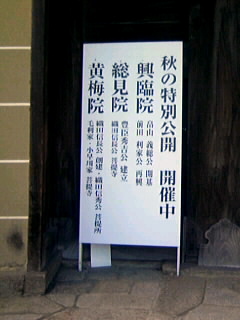 秋の特別公開　開催中
興臨院
畠山 義総公 開基
前田 利家公 再興
総見院
豊臣秀吉公 建立
織田信長公 菩提寺
黄梅院
織田信長公 創建・織田信秀公 菩提所
毛利家・小早川家 菩提寺